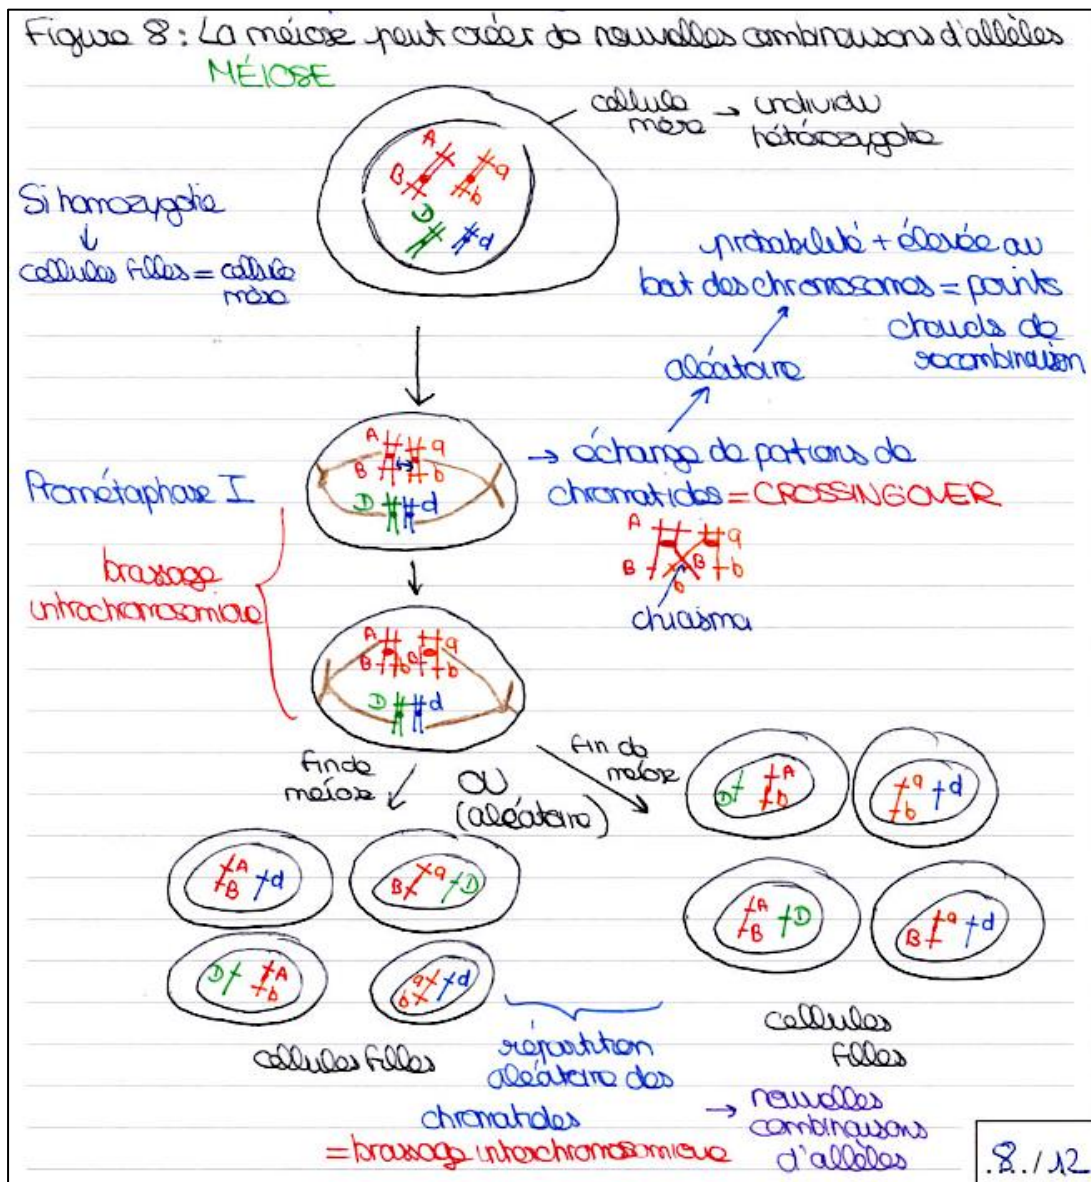 Figure 8 : La méiose peut créer de nouvelles combinaisons d'allèles
MÉIOSE
cellule mère → individu hétérozygote
A
B
a
b
D
d
Si homozygotie
↓
cellules filles = cellule mère
probabilité + élevée au
bout des chromosomes = points
chauds de
recombinaison
aléatoire
Prométaphase I
A
a
B
b
D
d
→ échange de portions de
chromatides = CROSSING OVER
A
a
B
B
b
b
chiasma
brassage
intrachromosomique
A
a
B
b
B
b
D
d
fin de
méiose
OU
(aléatoire)
fin de
méiose
D
A
b
a
b
d
A
B
d
B
a
D
A
B
D
B
a
d
D
A
b
a
b
d
cellules filles
répartition
aléatoire des
chromatides
= brassage interchromosomique
cellules
filles
→ nouvelles
combinaisons
d'allèles
.8./12